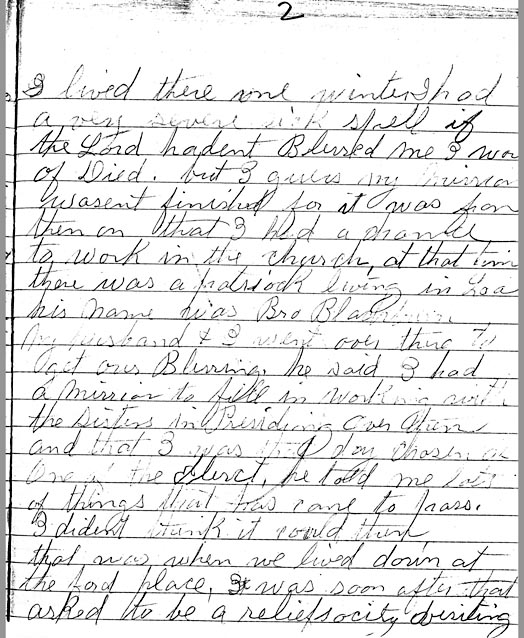 2
I lived there one winter I had
a very severe sick spell if
the Lord hadent Blessed me I wou
of Died. but I guess my mission
wasent finished for it was from
then on that I had a chance
to work in the church, at that tim
there was a patriock living in Loa
his name was Bro
my husband & I went over there to
get our Blessing. he said I had
a mission to fill in working with
the sisters in Presiding over them
and that I was day chosen as
One of the Elerct, he told me lots
of things that has came to pass.
I dident think it could then
that was when we lived down at
the ford place, It was soon after that
asked to be a reliefsocity visiting